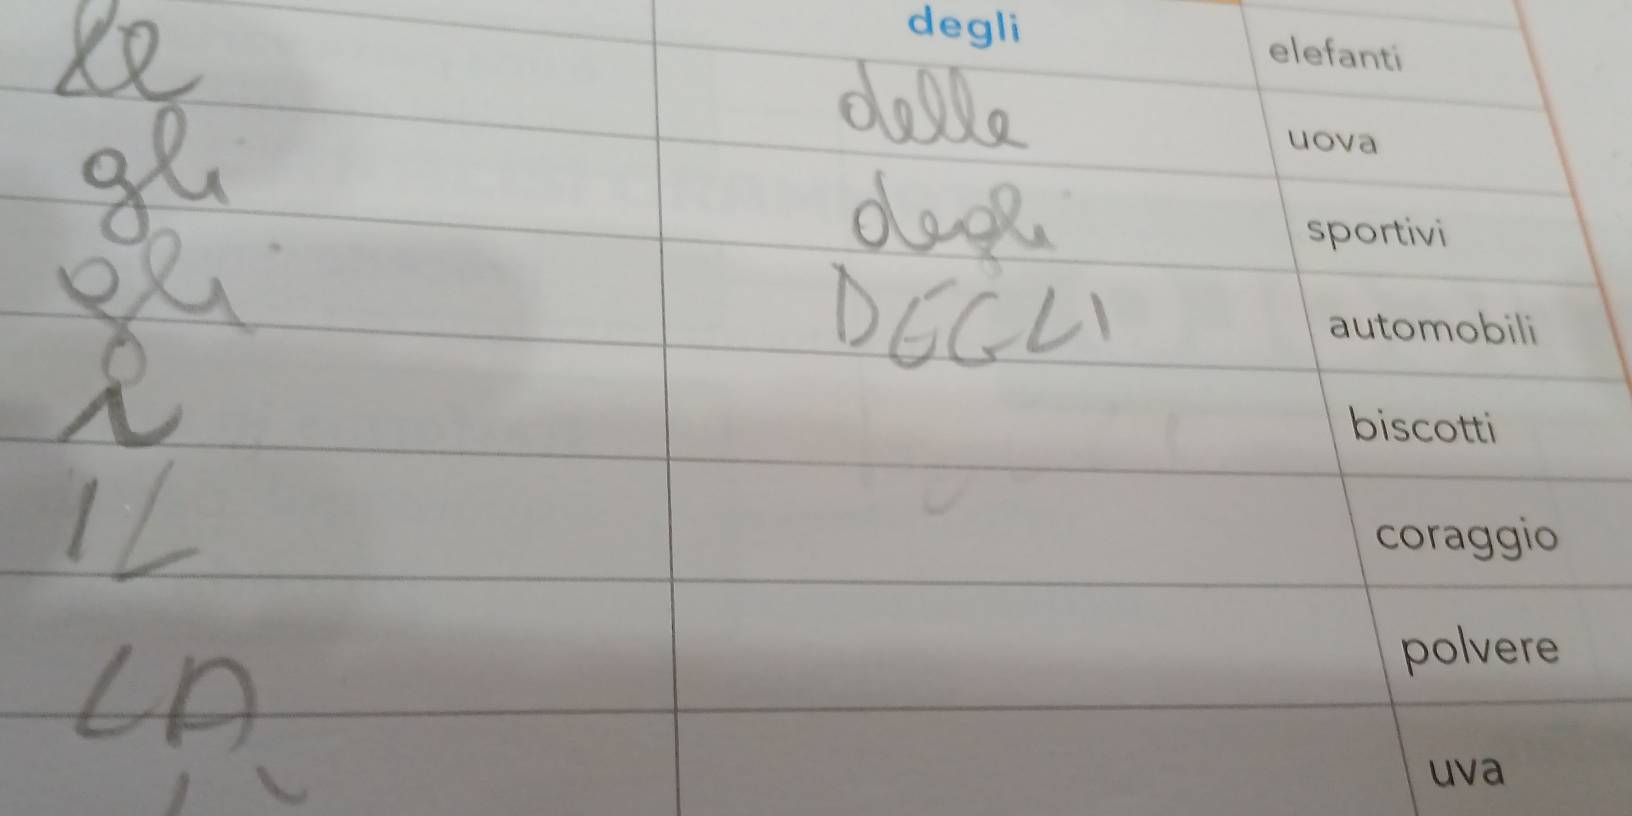 degli elefanti
le delle uova
gli degli sportivi
gli DEGLI automobili
i biscotti
IL coraggio
LA polvere
uva